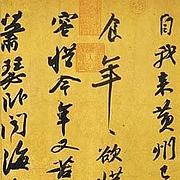 自我來黃州已
食年〻欲惜
容惜今年又苦
蕭瑟卧聞海